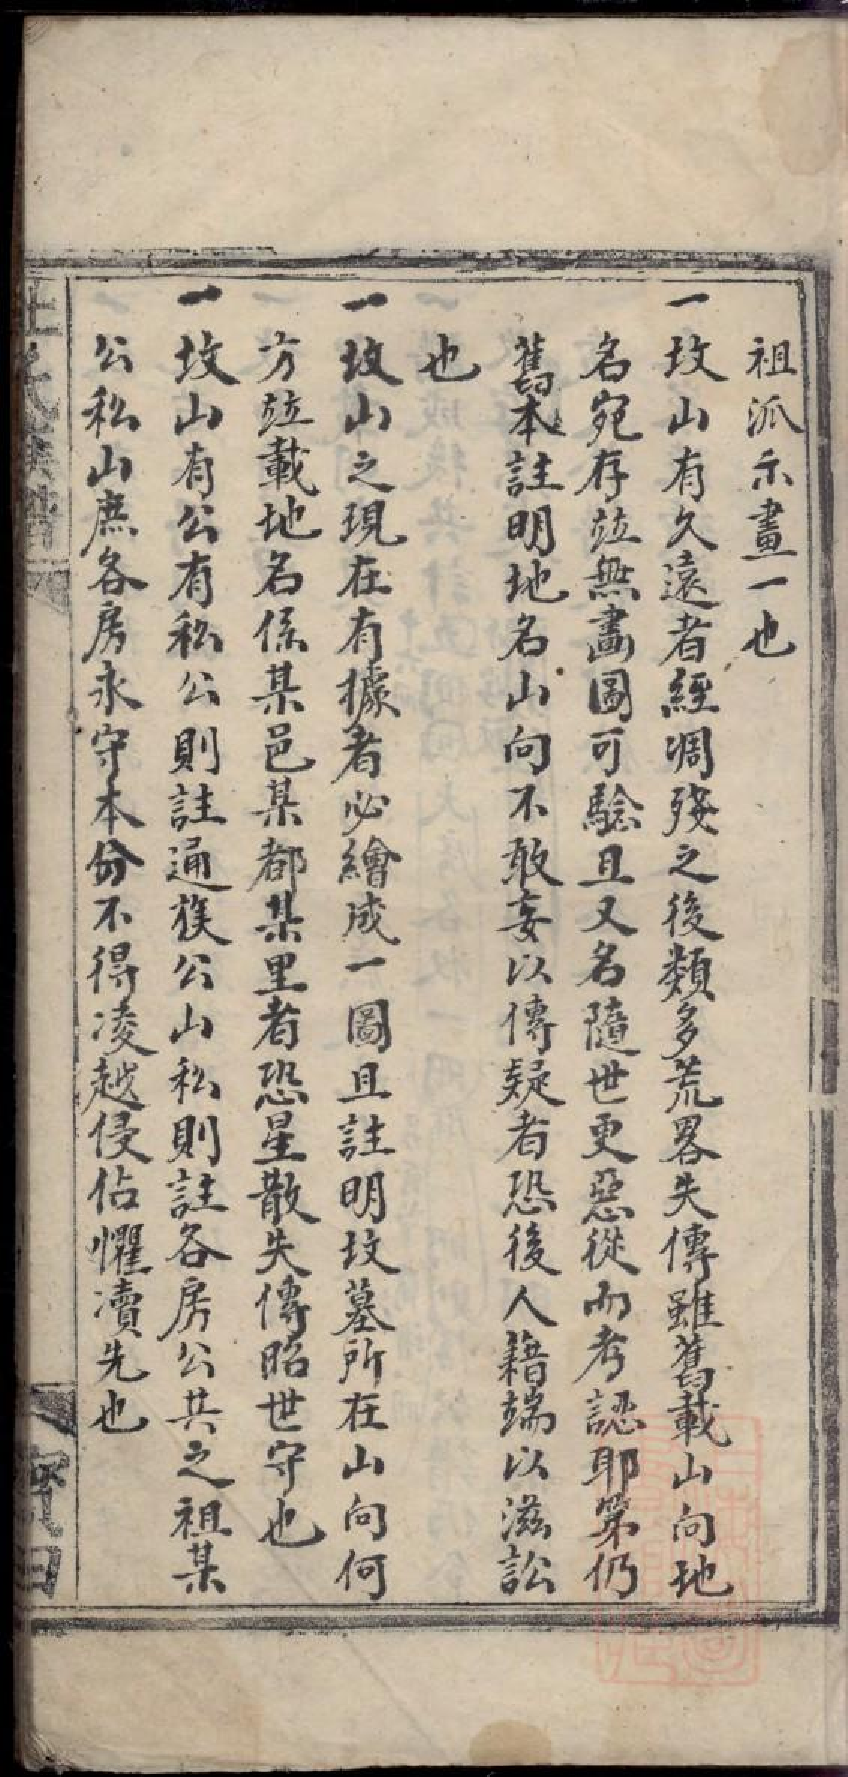 祖派示畫一也
一坟山有久遠者經凋殘之後類多荒畧失傳雖舊載山向地
名宛存竝無畵圖可驗且又名隨世更惡從而考認耶第仍
舊本註明地名山向不敢妄以傳疑者恐後人籍端以滋訟
也
一坟山之現在有據者必繪成一圖且註明坟墓所在山向何
方竝載地名係某邑某都某里者恐星散失傳昭世守也
一坟山有公有私公則註通族公山私則註各房公共之祖某
公私山庶各房永守本份不得凌越侵佔懼凟先也